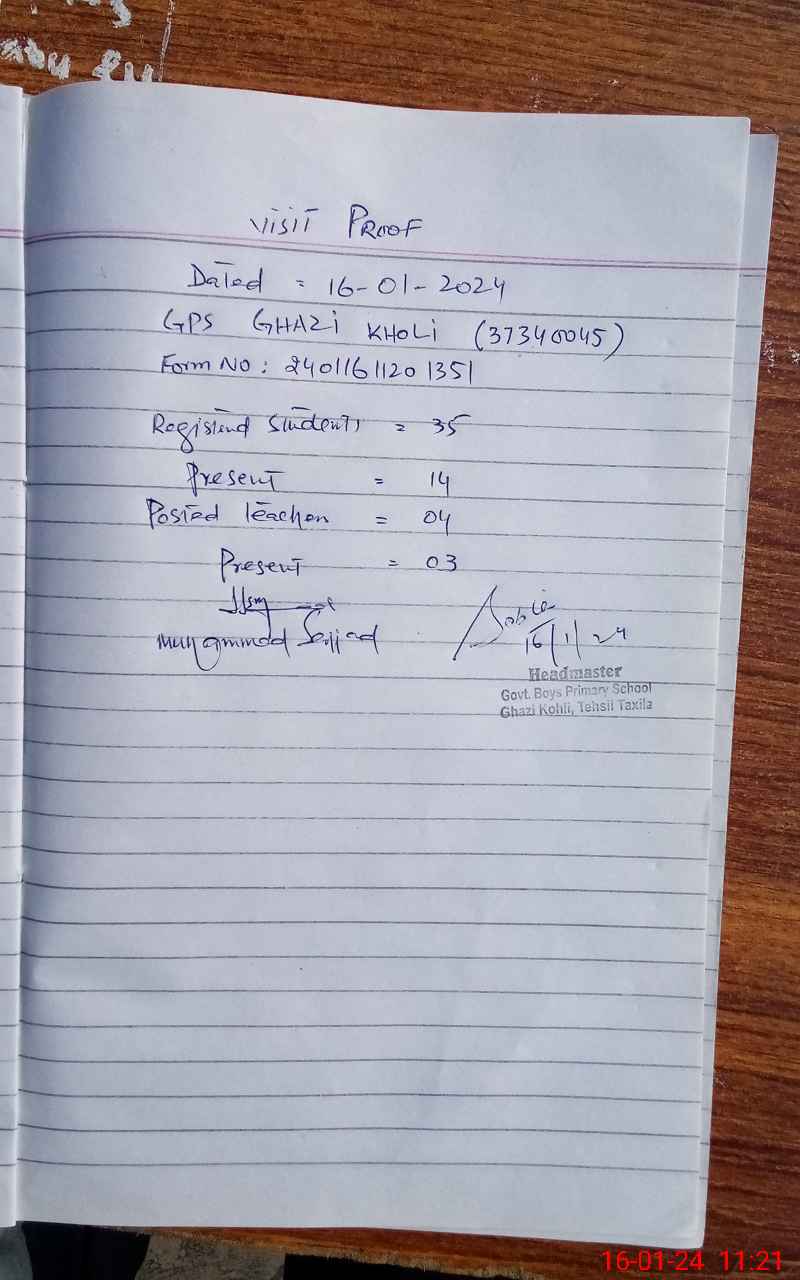 Visit Proof
Dated = 16-01-2024
GPS GHAZi KHOLi (37340045)
Form No: 2401161120 1351
Registerd Students = 35
Present = 14
Posted Teacher = 04
Present = 03
Muhammad Sajjad
16/1/24
Headmaster
Govt. Boys Primary School
Ghazi Kohli, Tehsil Taxila
16-01-24 11:21